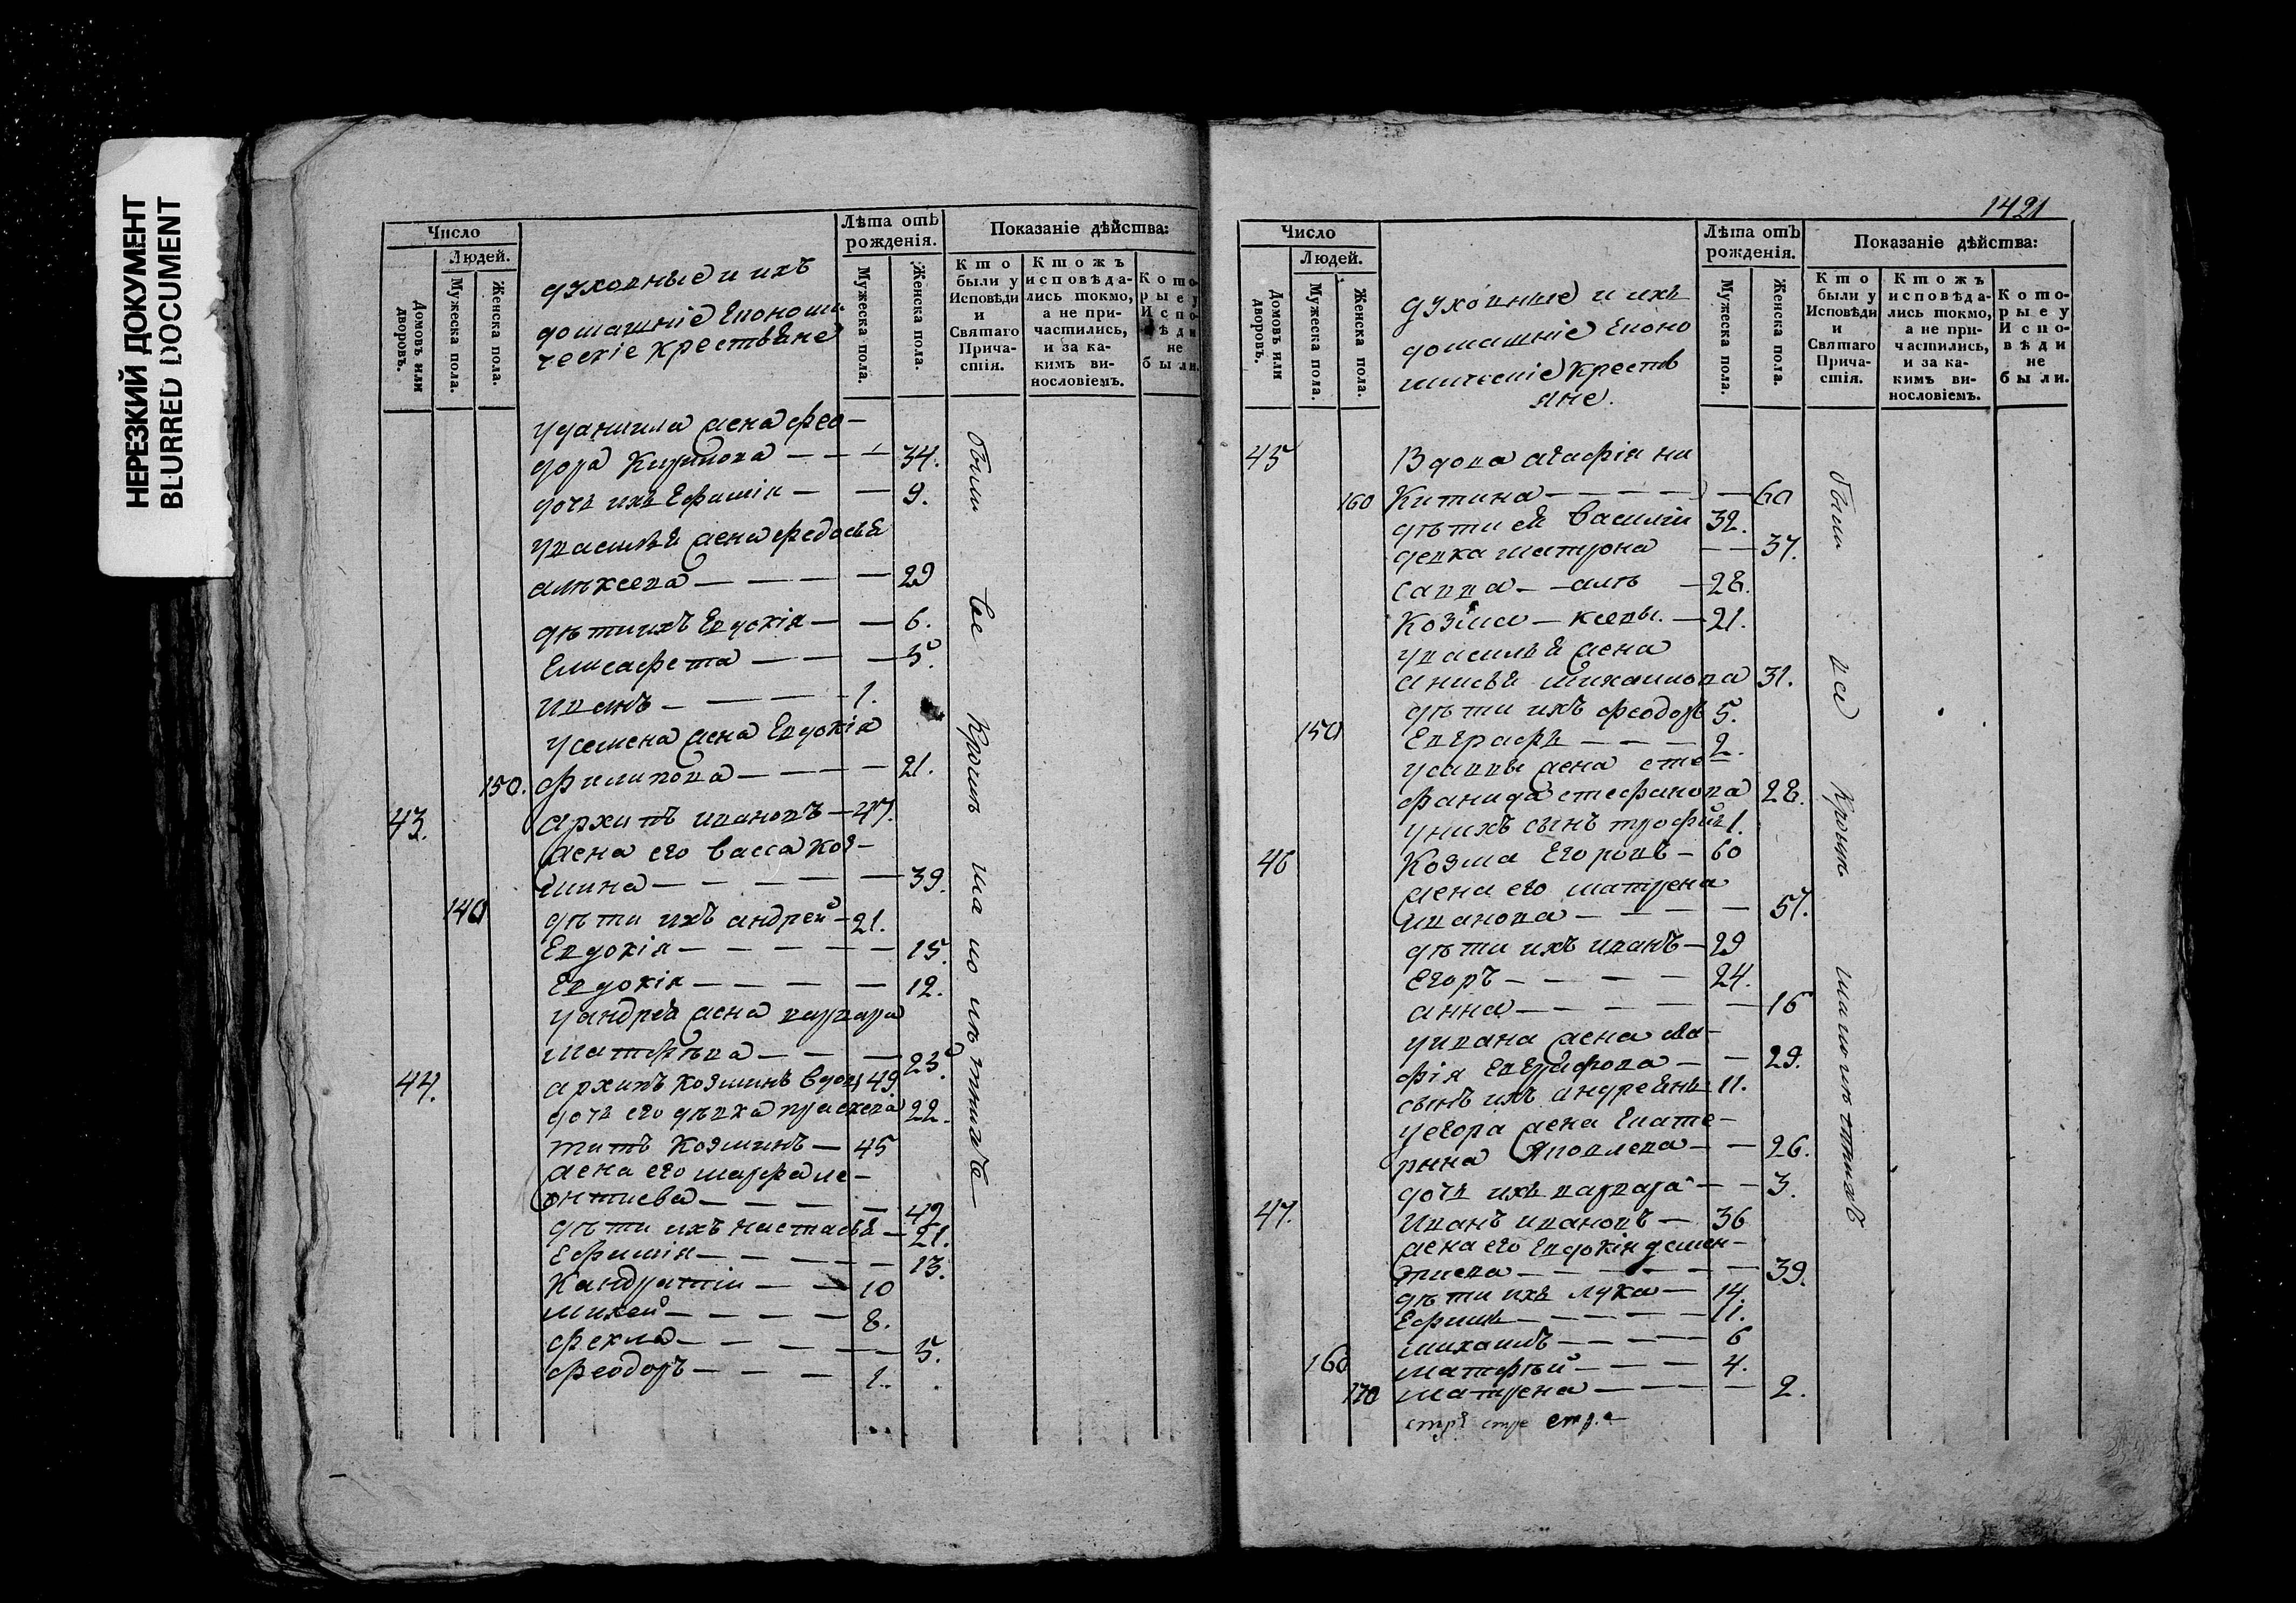 НЕРЕЗКИЙ ДОКУМЕНТ
BLURRED DOCUMENT
Число
Людей.
Домовъ или дворовъ.
Мужеска пола.
Женска пола.
духовные и ихъ
домашніе Економи
ческіе крестьяне
Лѣта отъ рожденія.
Мужеска пола.
Женска пола.
Показаніе дѣйства:
Кто были у Исповѣди и Святаго Причастія.
Ктожъ исповѣдались токмо, а не причастились, и за какимъ винословіемъ.
Которые у Исповѣди не были.
у данила жена фео-
дора Кирилова — — — 34.
дочь ихъ Ефимія — — 9.
у василья жена федосья
алѣксеева — — — — 29
дѣти ихъ Евдокія — — 6.
Елисафета — — — 5.
иванъ — — — 1.
у семена жена Евдокія
150. филипова — — — — 21.
43. архипъ ивановъ — 47.
жена его васса коз-
мина — — — — — 39.
140 дѣти ихъ андрей — 21.
Евдокія — — — — — 15.
Евдокія — — — — 12.
у андрея жена варвара
матфѣева — — — 23.
44. архипъ козминъ вдовъ 49
дочь его дѣвка праскева 22.
титъ козминъ — 45
жена его марфа ле-
онтиева — — — — 42
дѣти ихъ настасья — 21.
Ефимія — — — — 13.
Кандратіи — — 10
михей — — — — 8.
фекла — — — — — 5.
феодоръ — — — 1.
были
все
кромѣ
ма
ло
лѣтнихъ —
1421
Число
Людей.
Домовъ или дворовъ.
Мужеска пола.
Женска пола.
духовные и ихъ
домашніе Еконо
мическіе кресть
яне.
Лѣта отъ рожденія.
Мужеска пола.
Женска пола.
Показаніе дѣйства:
Кто были у Исповѣди и Святаго Причастія.
Ктожъ исповѣдались токмо, а не причастились, и за какимъ винословіемъ.
Которые у Исповѣди не были.
45 Вдова агафія ни
160 китина — — — — — 60
дѣти ея василіи 32.
девка матрона — — 37.
савва — алѣ — 28.
козма — ксеевы. — 21.
у василья жена
анисья михаилова 31.
дѣти ихъ феодоръ 5.
150 Евграфъ — — — 2.
у саввы жена сте
фанида стефанова 28.
у нихъ сынъ трофимъ 1.
46 Козма Егоровъ — 60
жена его матрена
иванова — — — — 57.
дѣти ихъ иванъ — 29
Егоръ — — — — 24.
анна — — — — — 16
у ивана жена ага-
фія Евграфова — — 29.
сынъ ихъ андреянъ 11.
у егора жена Екате-
рина Яковлева — — 26.
дочь ихъ варвара — — 3.
47. Иванъ ивановъ — 36
жена его Евдокія демен-
тиева — — — — — 39.
дѣти ихъ лука — 14.
Ефимъ — — — — 11.
михаилъ — — — 6
160 матфѣй — — — 4.
170 матрена — — — — 2.
были
все
кромѣ
малолѣтнихъ